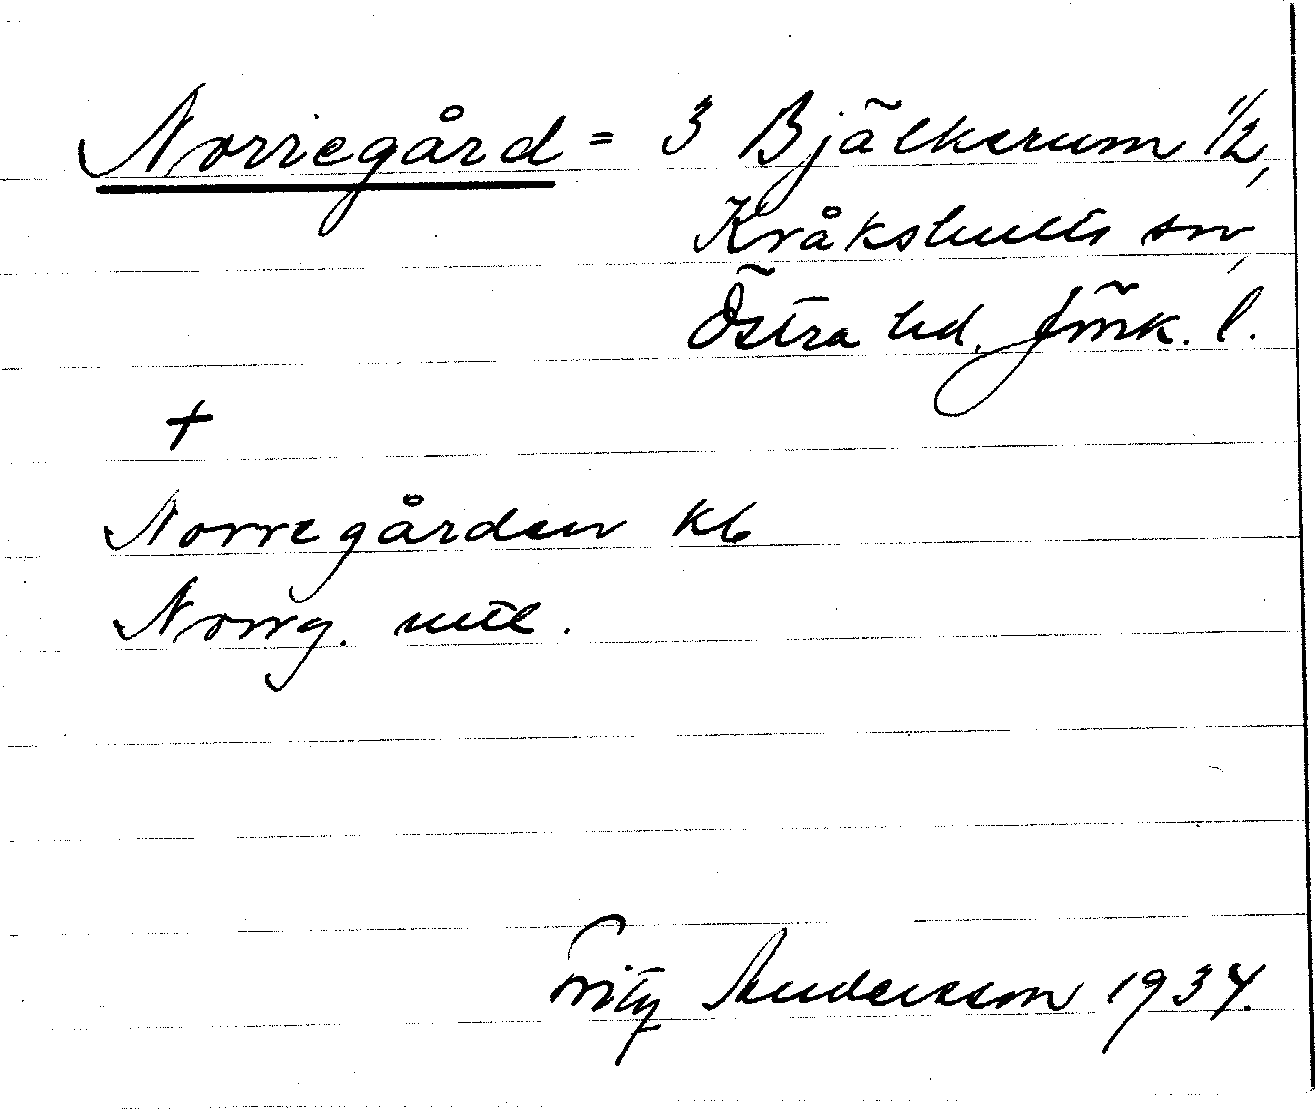 Norregård = 3 Bjälkerum 1/2,
Kråkshults sn,
Östra hd. Jönk. l.
+
Norregården kb
Norrg. mtl.
Fritz Andersson 1934.